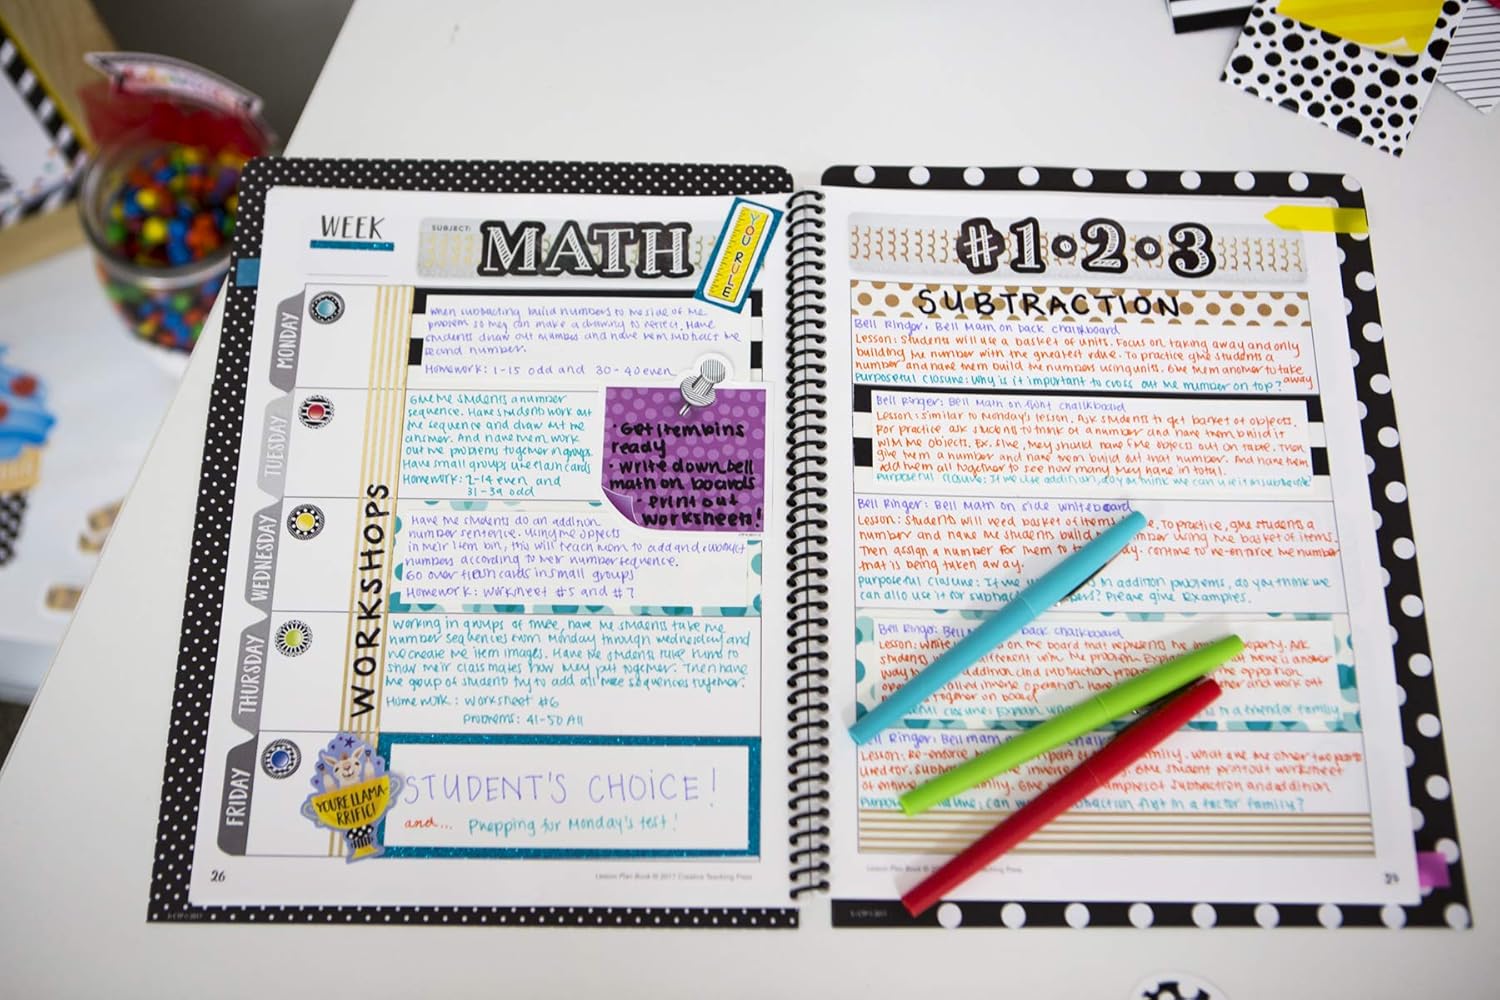 WEEK
SUBJECT:
MATH
YOU RULE
MONDAY
When subtracting build numbers to the side of the
problem so they can make a drawing to reflect. Have
students draw out number and have them subtract the
second number.
Homework: 1-15 odd and 30-40 even
TUESDAY
Give the students a number
sequence. Have students work out
the sequence and draw out the
answer. And have them work
out the problems together in groups.
Have small groups use flash cards
Homework: 2-14 even and
31-39 odd
• Get item bins
ready
• Write down bell
math on boards
• Print out
worksheets!
WORKSHOPS
WEDNESDAY
Have the students do an addition
number sentence. Using the objects
in their item bin, this will teach them to add and subtract
numbers according to their number sequence.
Go over flash cards in small groups
Homework: Worksheet #5 and #7
THURSDAY
Working in groups of three, have the students take the
number sequences from Monday through Wednesday and
recreate the item images. Have the students take turns to
show their classmates how they put together. Then have
the group of student try to add all three sequences together.
Homework: Worksheet #6
Problems: 41-50 All
FRIDAY
YOU'RE LLAMA-
RRIFIC!
STUDENT'S CHOICE!
and... Prepping for Monday's test!
26
Lesson Plan Book © 2017 Creative Teaching Press
#1•2•3
SUBTRACTION
Bell Ringer: Bell Math on back chalkboard
Lesson: Students will use a basket of units. Focus on taking away and only
building the number with the greatest value. To practice give students a
number and have them build the numbers using units. Give them another to take
away
Purposeful Closure: Why is it important to cross out the number on top?
Bell Ringer: Bell Math on front chalkboard
Lesson: Similar to Monday's lesson. Ask students to get basket of objects.
For practice ask students to think of a number and have them build it
with the objects. Ex. Five, they should have five objects out on table. Then
give them a number and have them build out that number. And have them
add them all together to see how many they have in total.
Purposeful Closure: If we use addition, do you think we can use it in subtraction?
Bell Ringer: Bell Math on side whiteboard
Lesson: Students will need basket of items. To practice, give students a
number and have the students build number using the basket of items.
Then assign a number for them to away. Continue to re-enforce the number
that is being taken away.
Purposeful Closure: If we in addition problems, do you think we
can also use it for Please give examples.
Bell Ringer: Bell back chalkboard
Lesson: Write on the board that represents the property. Ask
students different with the problem. there is another
way addition and subtraction the opposition
called inverse operation. Have and work out
together on board
Closure: Explain to a friend or family
Bell Ringer: Bell Math
Lesson: Re-enforce part of family. What are the other two parts
used for. the inverse Give student printout worksheet
of entire family. Give examples of subtraction and addition
Purpo can subtraction fist in a factor family?
Lesson Plan Book © Creative Teaching Press